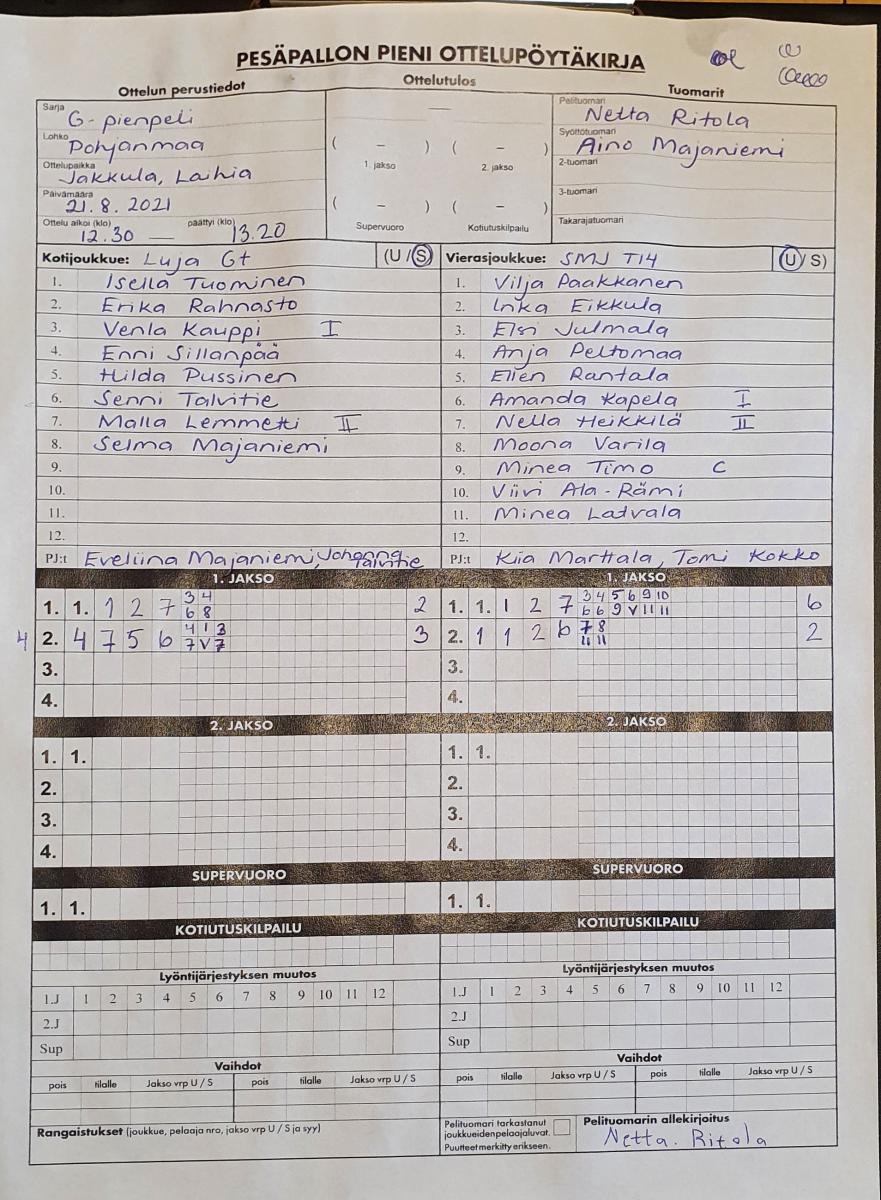 PESÄPALLON PIENI OTTELUPÖYTÄKIRJA
Ottelun perustiedot
Sarja G-pienpeli
Lohko Pohjanmaa
Ottelupaikka Jakkula, Laihia
Päivämäärä 21.8.2021
Ottelu alkoi (klo) päättyi (klo)
12.30 — 13.20
Ottelutulos
—
( – ) ( – )
1. jakso 2. jakso
( – ) ( – )
Supervuoro Kotiutuskilpailu
Tuomarit
Pelituomari Netta Ritola
Syöttötuomari Aino Majaniemi
2-tuomari
3-tuomari
Takarajatuomari
Kotijoukkue: Luja Gt (U/S)
1. Isella Tuominen
2. Erika Rahnasto
3. Venla Kauppi I
4. Enni Sillanpää
5. Hilda Pussinen
6. Senni Talvitie
7. Malla Lemmetti II
8. Selma Majaniemi
9.
10.
11.
12.
PJ:t Eveliina Majaniemi, Johanna Talvitie
Vierasjoukkue: SMJ T14 (U/S)
1. Vilja Paakkanen
2. Inka Eikkula
3. Elsi Julmala
4. Anja Peltomaa
5. Ellen Rantala
6. Amanda Kapela I
7. Nella Heikkilä II
8. Moona Varila
9. Minea Timo C
10. Viivi Ala-Rämi
11. Minea Latvala
12.
PJ:t Kiia Marttala, Tomi Kokko
1. JAKSO
3 4
1. 1. 1 2 7 6 8 2
4 1 3
4 2. 4 7 5 6 7 V 7 3
3.
4.
1. JAKSO
3 4 5 6 9 10
1. 1. 1 2 7 6 6 9 V 11 11 6
7 8
2. 1 1 2 6 11 11 2
3.
4.
2. JAKSO
1. 1.
2.
3.
4.
2. JAKSO
1. 1.
2.
3.
4.
SUPERVUORO
1. 1.
SUPERVUORO
1. 1.
KOTIUTUSKILPAILU
KOTIUTUSKILPAILU
Lyöntijärjestyksen muutos
1.J 1 2 3 4 5 6 7 8 9 10 11 12
2.J
Sup
Lyöntijärjestyksen muutos
1.J 1 2 3 4 5 6 7 8 9 10 11 12
2.J
Sup
Vaihdot
pois tilalle Jakso vrp U / S pois tilalle Jakso vrp U / S
Vaihdot
pois tilalle Jakso vrp U / S pois tilalle Jakso vrp U / S
Rangaistukset (joukkue, pelaaja nro, jakso vrp U / S ja syy)
Pelituomari tarkastanut
joukkueiden pelaajaluvat.
Puutteet merkitty erikseen.
Pelituomarin allekirjoitus
Netta. Ritola